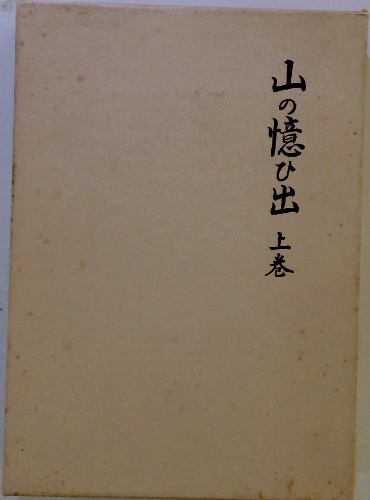 山の憶ひ出 上巻